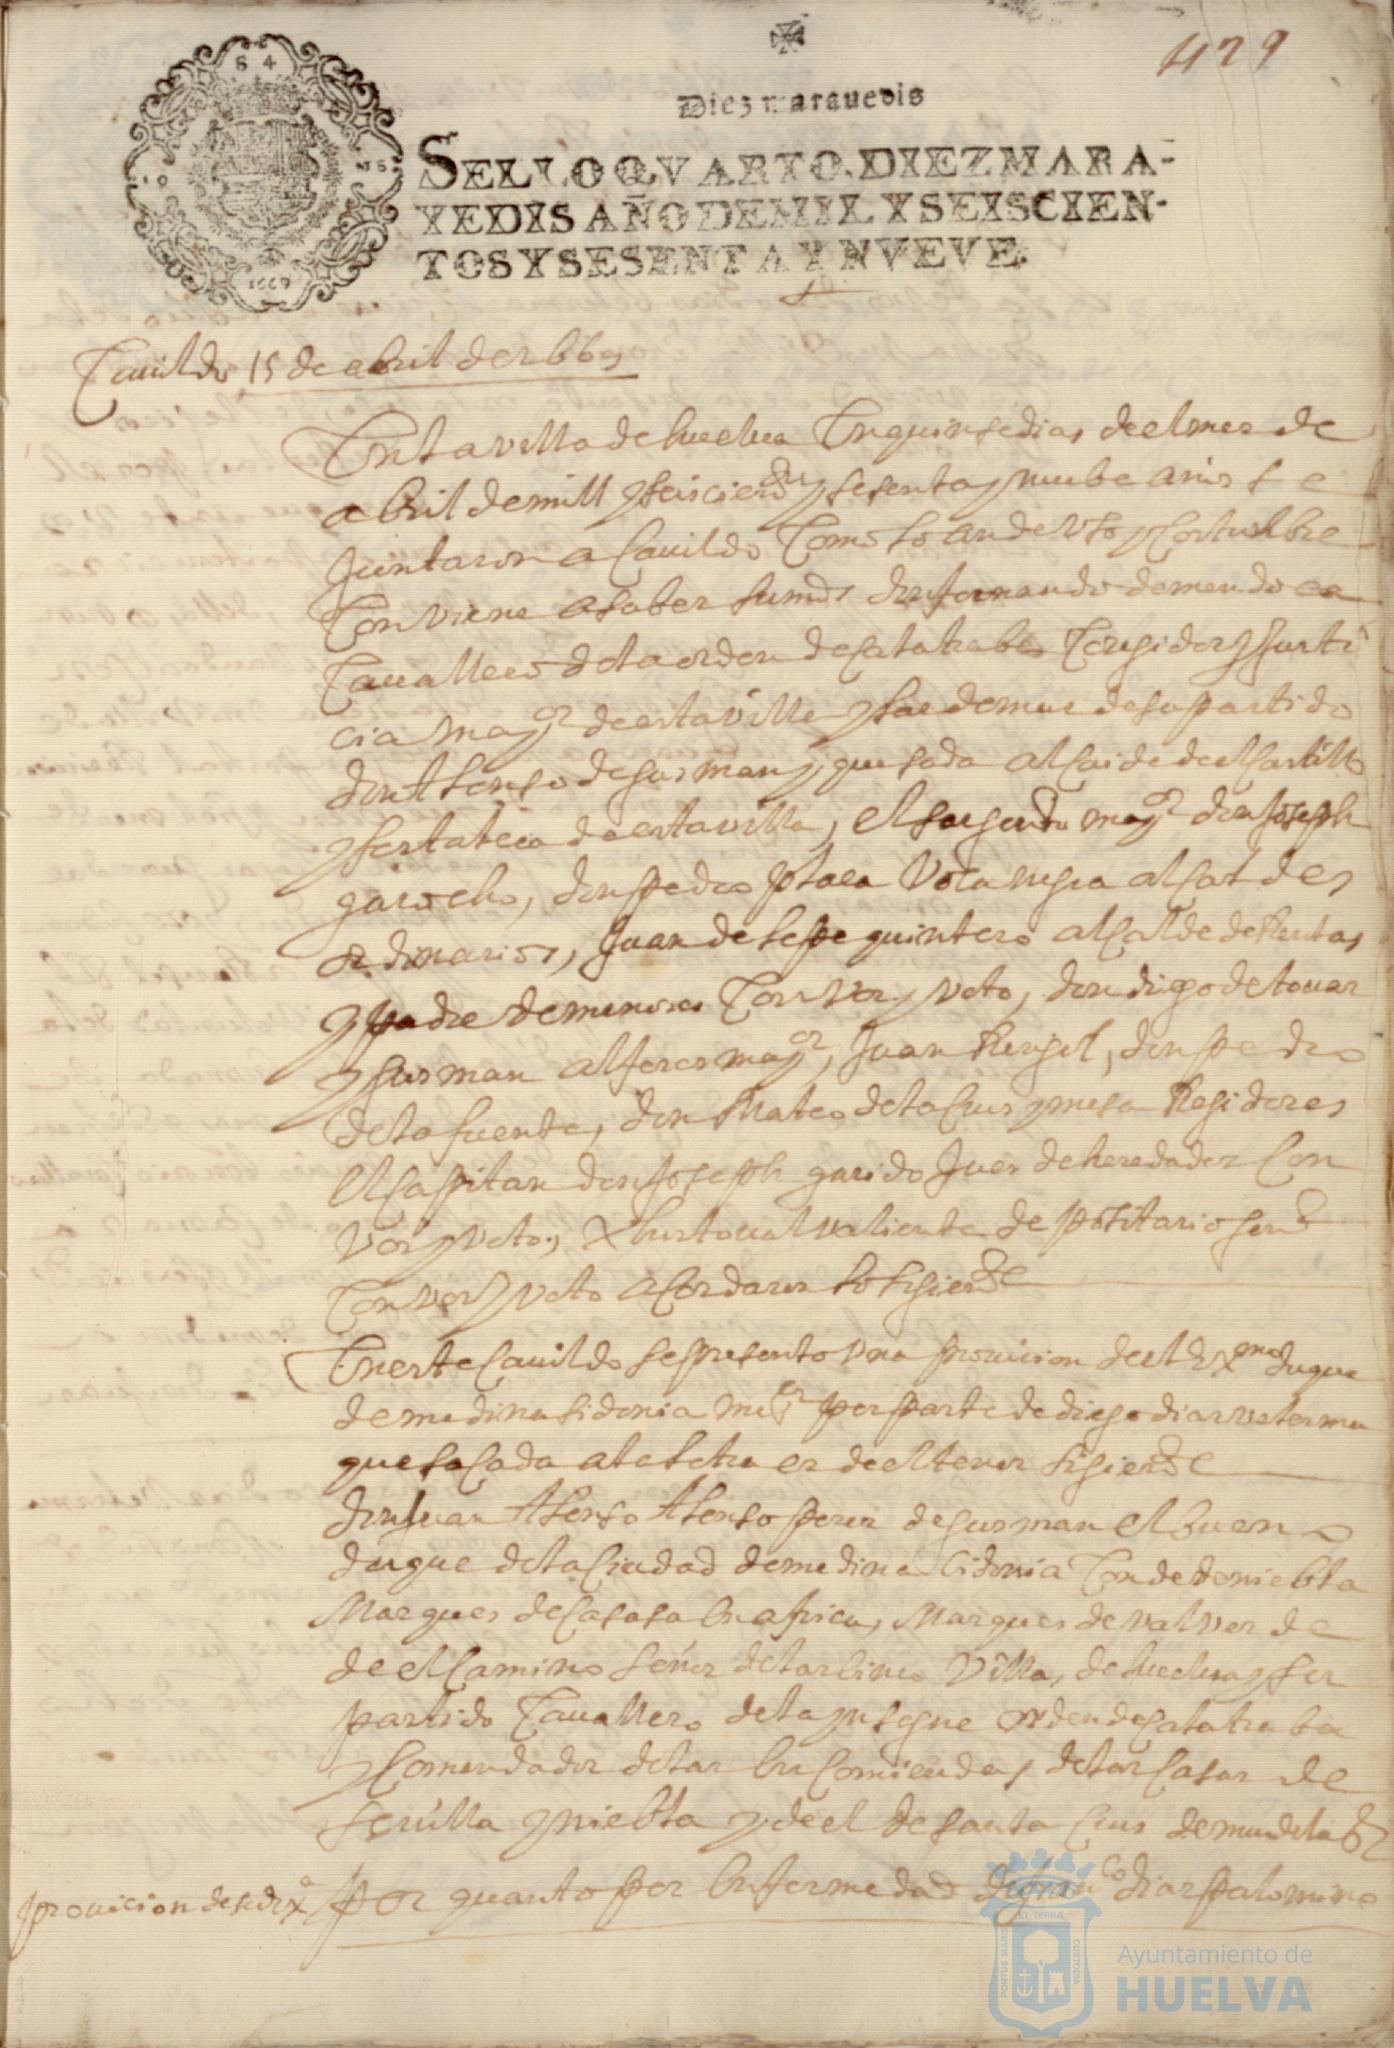 429
Diez marauedis
SELLO QVARTO, DIEZ MARA-
VEDIS, AÑO DE MIL Y SEISCIEN-
TOS Y SESENTA Y NVEVE.
84
1669
Cauildo 15 de abril de 1669
En la villa de huelua En quinse dias de el mes de
abril de mill y seiscientos y sesenta y nuebe años se
Juntaron a Cauildo Como lo an de Vso y Costunbre
Conviene a saber su md don fernando de mendoca
Cauallero de la orden de Calatraba Coregidor y Justi
cia mayor de esta villa y las demas de su partido
don Alonso de Gusman y quesada alcaide de el Castillo
y fortaleca de esta villa, el sargento mayor don Joseph
garocho, don pedro plaça alcaldes
ordinarios, Juan de lepe quintero alcalde de Rentas
y padre de menores Con Vox y voto, don diego de touar
y Gusman alferes mayor, Juan Rengel, don pedro
de la fuente, don Mateo de la Crus y mesa Regidores
el Capitan don Joseph garido Jues de heredades Con
Vox y Voto, Xptoual valiente depositario gen
Con Vox y Voto acordaron lo siguiente
En este Cauildo se presento Vna prouicion de el Exmo duque
de medina sidonia mi sr por parte de diego dias
que sacada a la letra es de el tenor siguiente
don Juan Alonso Alonso peres de gusman el bueno
duque de la Ciudad de medina Cidonia Conde de niebla
Marques de Casasa en africa, Marques de valverde
de el Camino señor de las Cinco Villas, de huelua y su
partido Cauallero de la ynsigne orden de Calatraba
y Comendador de las encomiendas de las Casas de
Seuilla y niebla y de el de santa Crus
prouicion de su Exa por quanto por enfermedad de franco dias palomino
PORTUS MARIS
ET TERRÆ
CUSTODIA
Ayuntamiento de
HUELVA